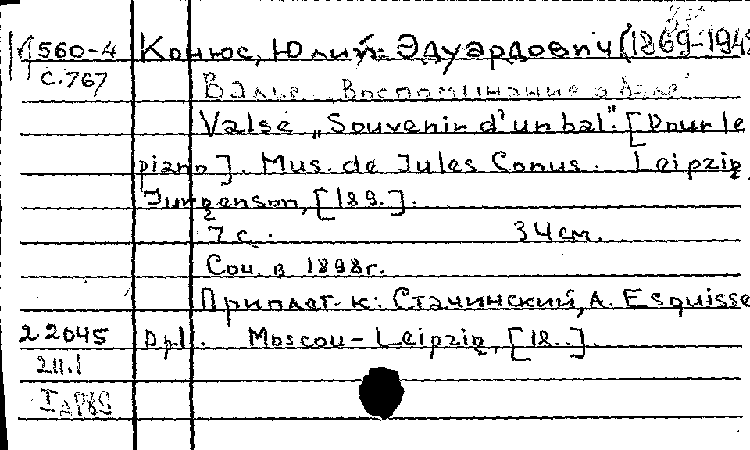 560-4 Конюс, Юлий Эдуардович (1869-194
С.767
Вальс Воспоминание о бале
Valse „Souvenir d'un bal". [Pour le
piano]. Mus. de Jules Conus. Leipzig,
Jurgenson, [189.].
7 с. 34 см.
Соч. в 1898 г.
Приплет. к: Стачинский, А. Esquisse
22045 Moscou-Leipzig, [18..]
2И.1